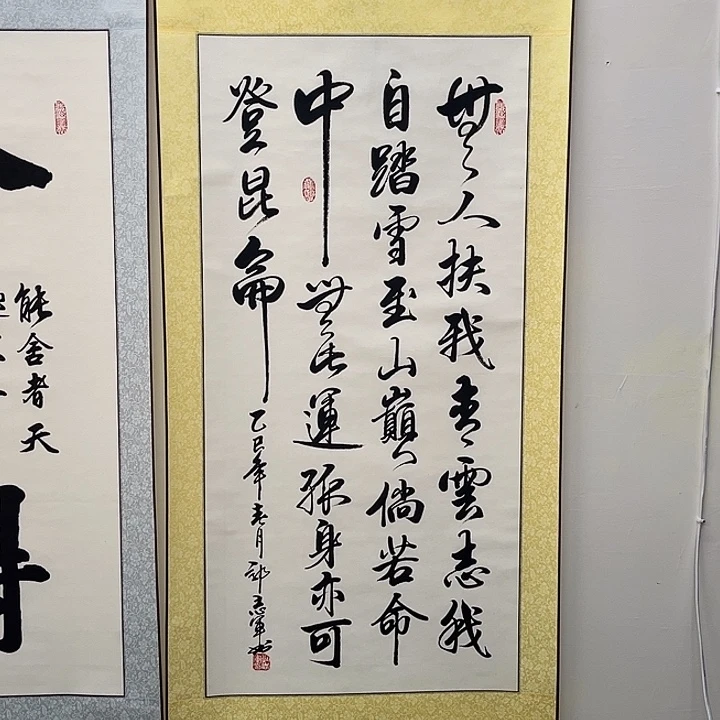 無人扶我青雲志我
自踏雪至山巔倘若命
中無此運孤身亦可
登昆侖
乙巳年春月郭志軍
能舍者天